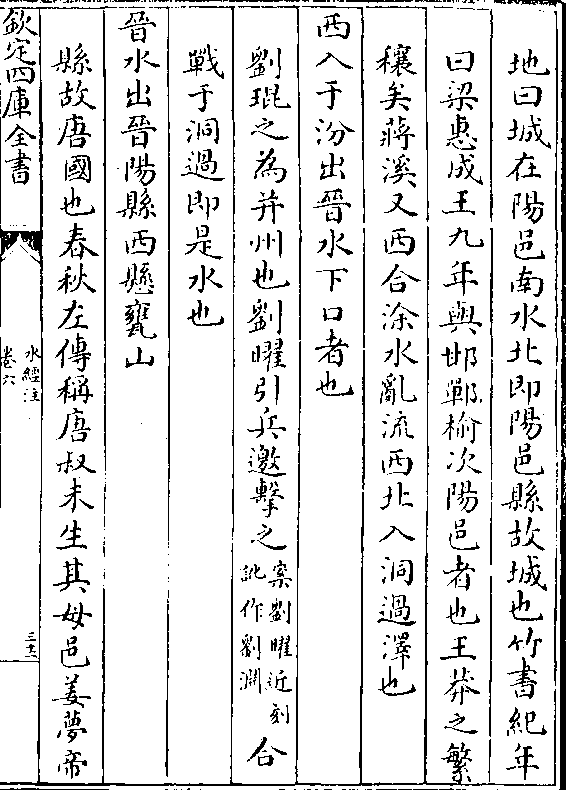 地曰城在陽邑南水北即陽邑縣故城也竹書紀年
曰梁惠成王九年與邯鄲榆次陽邑者也王莽之繁
穰矣蔣溪又西合涂水亂流西北入洞過澤也
西入于汾出晉水下口者也
劉琨之為并州也劉曜引兵邀擊之案劉曜近刻訛作劉淵合
戰于洞過即是水也
晉水出晉陽縣西懸甕山
縣故唐國也春秋左傳稱唐叔未生其母邑姜夢帝
欽定四庫全書
水經注
卷六